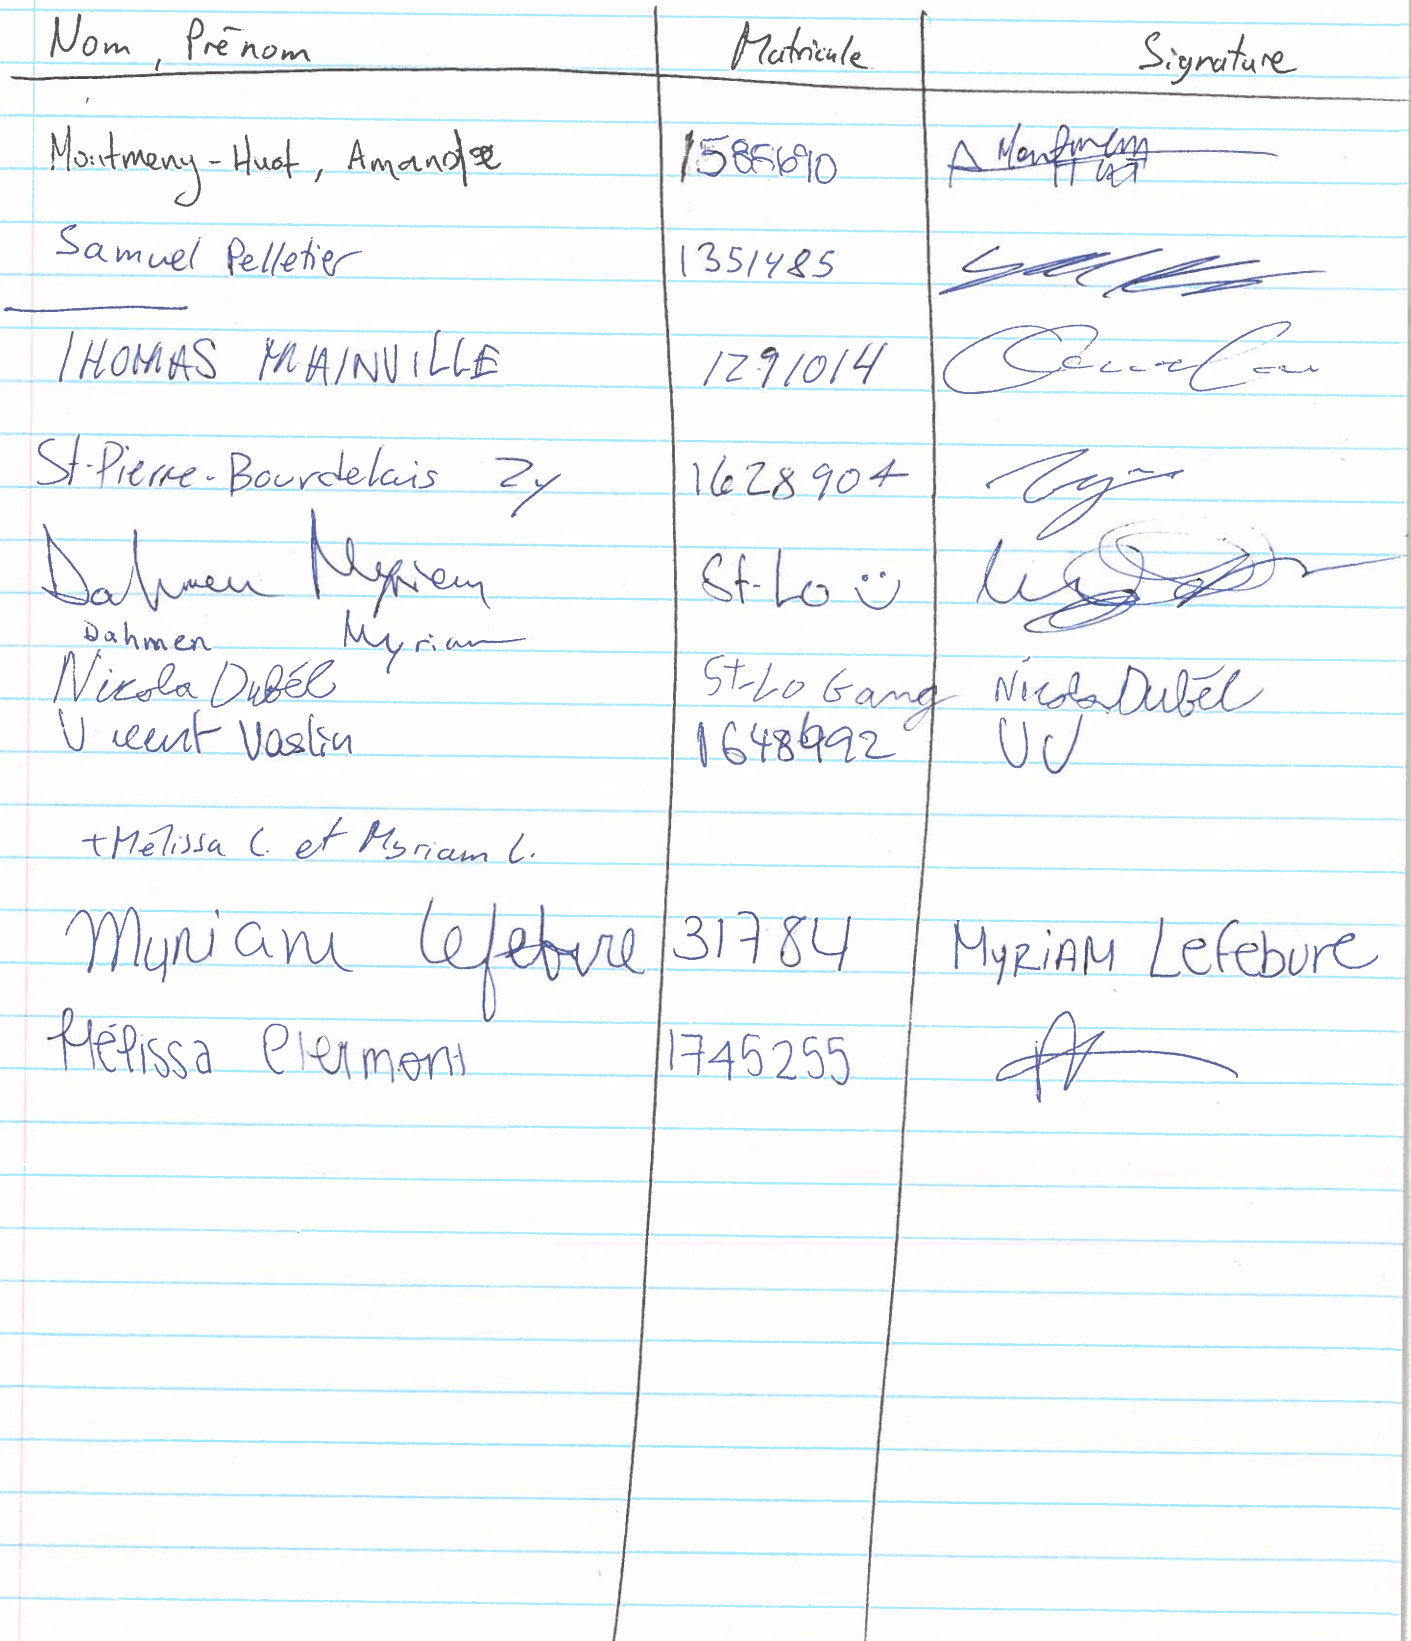 Nom, Prénom Matricule Signature
Montmeny-Huot, Amandæ 1585690 A Montmeny Huot
Samuel Pelletier 1351485
THOMAS MAINVILLE 1291014
St-Pierre-Bourdelais Zy 1628904
Dahmen Myriam St-Lo :)
Dahmen Myriam
Nikola Dubél St-Lo Gang Nikola Dubél
Vincent Vaslin 1648992 VV
+Mélissa C. et Myriam L.
Myriam Lefebvre 31784 MYRIAM Lefebvre
Mélissa Clermont 1745255